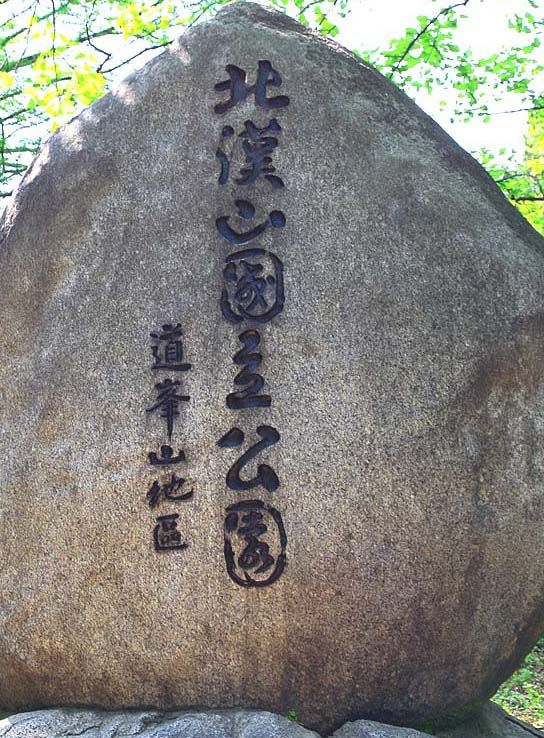 北漢山國立公園
道峯山地區